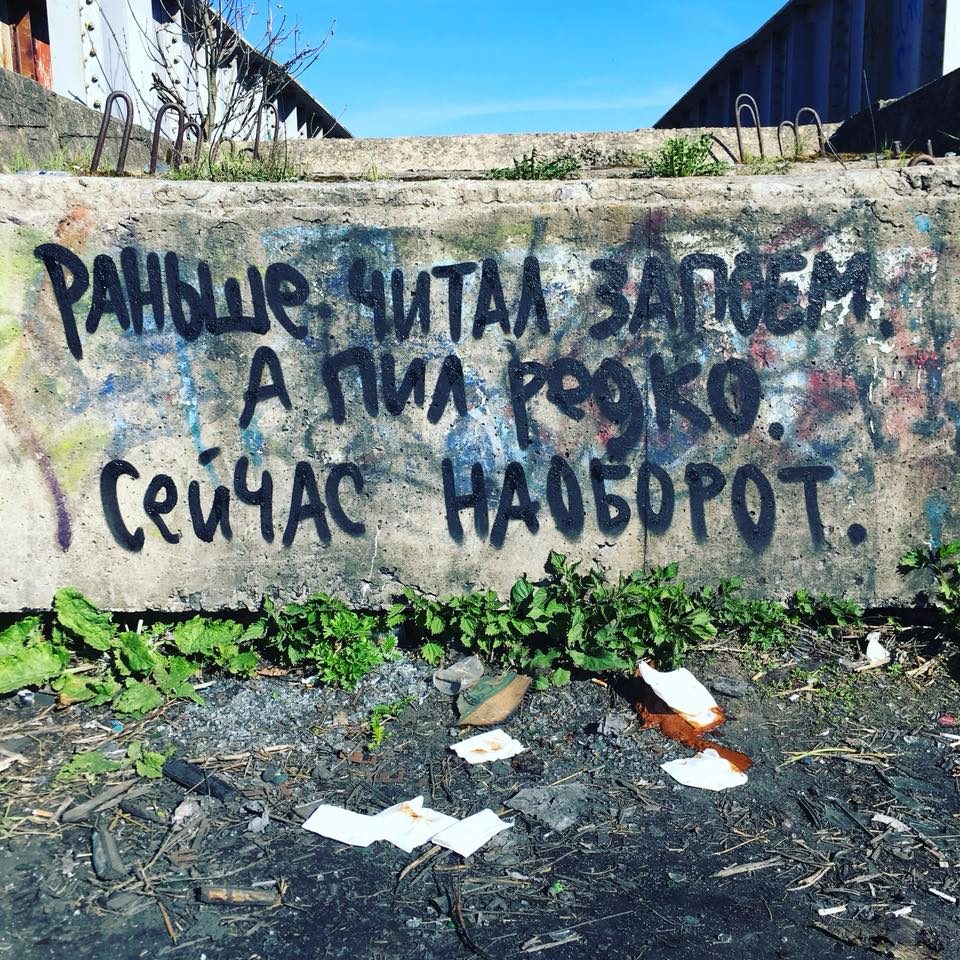 Раньше читал запоем.
А пил редко.
Сейчас наоборот.